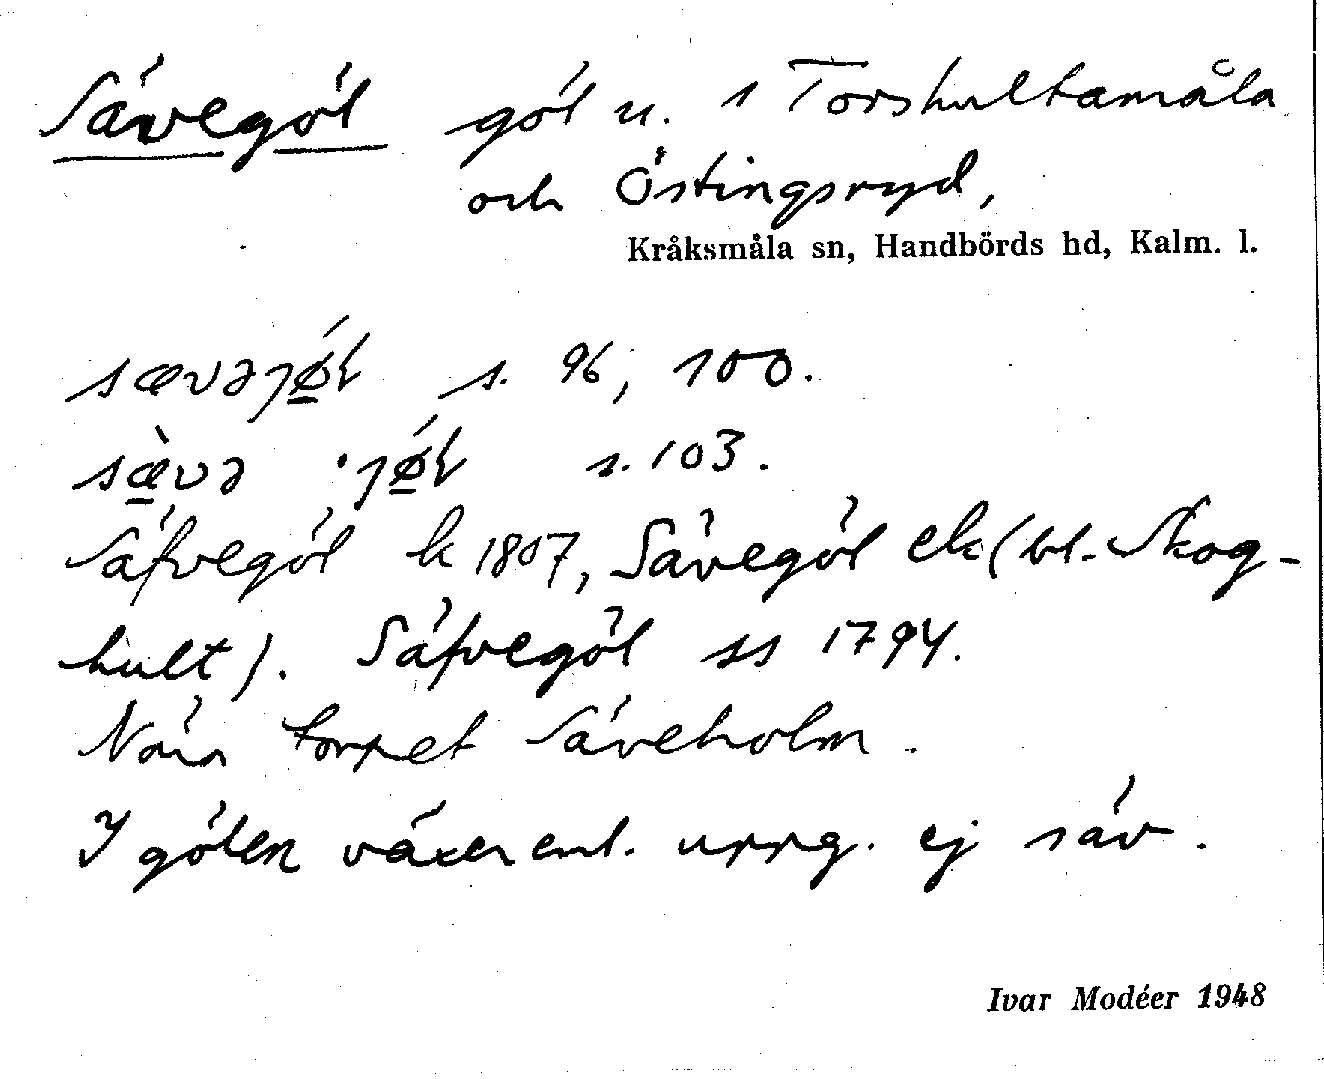 Sävegöl göl u. s Torshultamåla
och Östingsryd,
Kråksmåla sn, Handbörds hd, Kalm. l.
sævəjǿ̱ɫ s. 96, 100.
sæ̱̀və ˈjǿ̱ɫ s. 103.
Säfvegöl k 1807, Sävegöl ek (bl. Skog-
hult). Säfvegöl ss 1794.
Nära torpet Säveholm.
I gölen växer enl. uppg. ej säv.
Ivar Modéer 1948